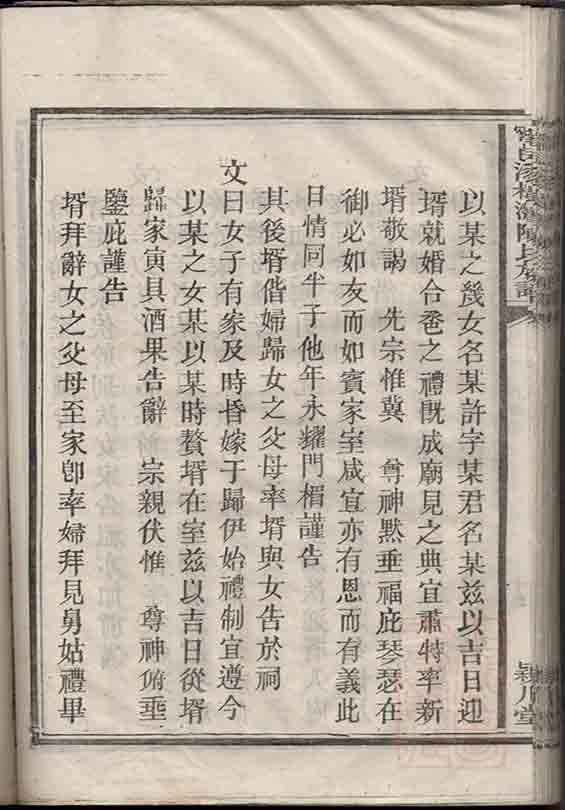 以某之幾女名某許字某君名某茲以吉日迎
壻就婚合卺之禮旣成廟見之典宜肅特率新
壻敬謁　先宗惟冀　尊神黙垂福庇琴瑟在
御必如友而如賓家室咸宜亦有恩而有義此
日情同半子他年永耀門楣謹告
其後壻偕婦歸女之父母率壻與女告於祠
文曰女子有家及時昏嫁于歸伊始禮制宜遵今
以某之女某以某時贅壻在室茲以吉日從壻
歸家寅具酒果告辭　宗親伏惟　尊神俯垂
鑒庇謹告
壻拜辭女之父母至家卽率婦拜見舅姑禮畢
陳氏族譜
潁川堂